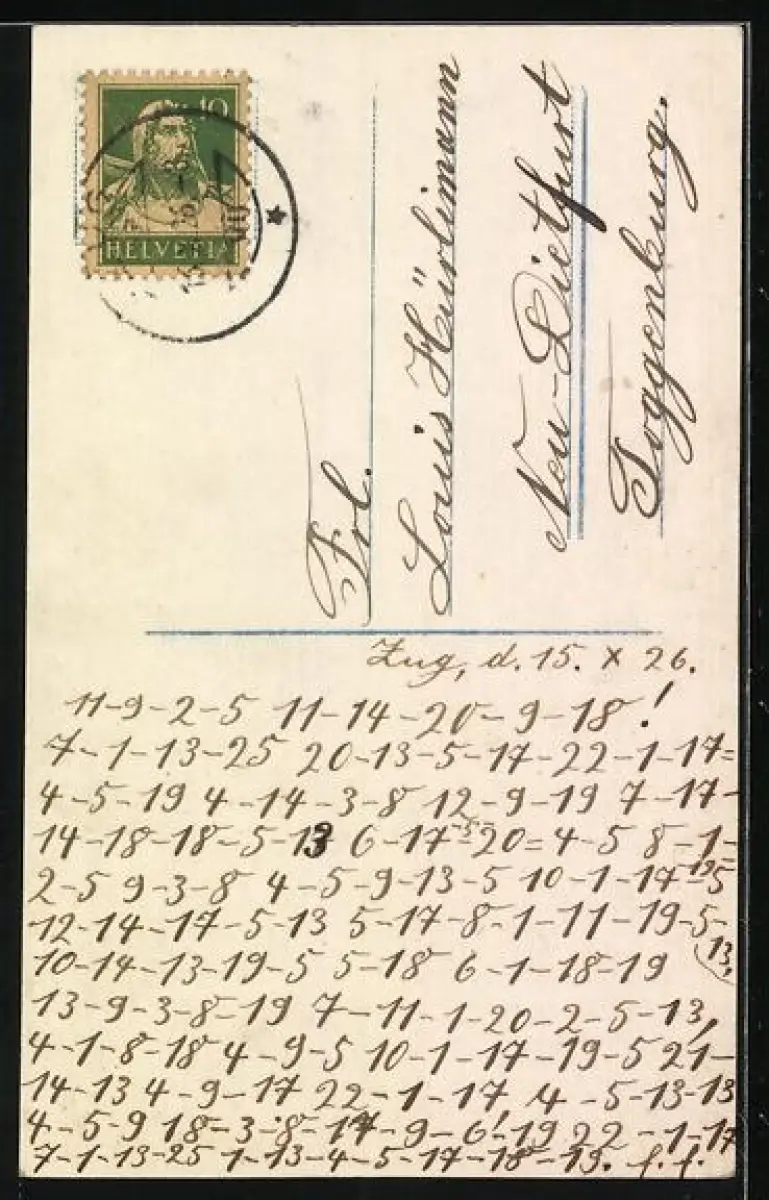 10
HELVETIA
Frl.
Louis Hürlimann
Neu-Dietfurt
Toggenburg.
Zug, d. 15. X 26.
11-9-2-5 11-14-20-9-18!
7-1-13-25 20-13-5-17-22-1-17=
4-5-19 4-14-3-8 12-9-19 7-17-
14-18-18-5-13 6-17-5-20=4-5 8-1-
2-5 9-3-8 4-5-9-13-5 10-1-17-19-5
12-14-17-5-13 5-17-8-1-11-19-5-
13,
10-14-13-19-5 5-18 6-1-18-19
13-9-3-8-19 7-11-1-20-2-5-13,
4-1-8-18 4-9-5 10-1-17-19-5 21-
14-13 4-9-17 22-1-17 4-5-13-13
4-5-9 18-3-8-17-9-6!-19 22-1-17
7-1-13-25 1-13-4-5-17-18-19. f.f.